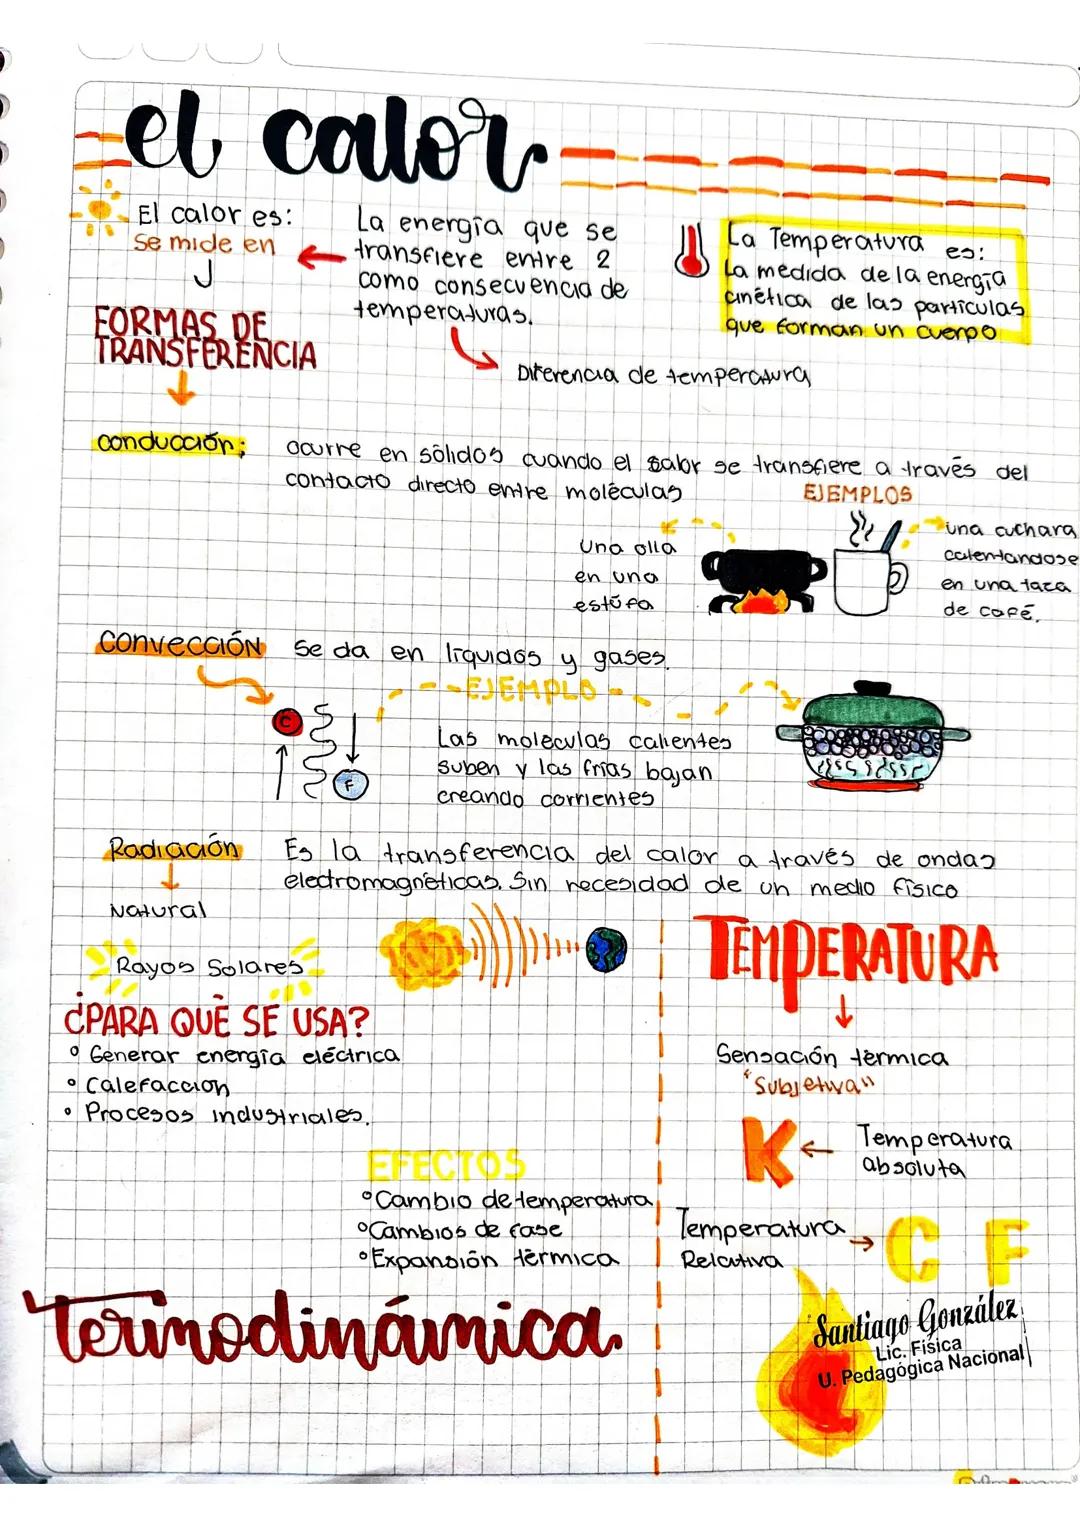 el calor
El calor es:
Se mide en
J
La energía que se
transfiere entre 2
como consecuencia de
temperaturas.
Diferencia de temperatura
La Temperatura es:
La medida de la energía
cinética de las partículas
que forman un cuerpo
FORMAS DE
TRANSFERENCIA
conducción;
ocurre en sólidos cuando el calor se transfiere a través del
contacto directo entre moléculas
EJEMPLOS
Una olla
en una
estufa
una cuchara
calentandose
en una taza
de café.
Convección
Se da en líquidos y gases.
EJEMPLO
C
F
Las moleculas calientes
suben y las frías bajan
creando corrientes
Radiación
Es la transferencia del calor a través de ondas
electromagnéticas. Sin necesidad de un medio físico
Natural
Rayos Solares
¿PARA QUÉ SE USA?
° Generar energía eléctrica
° Calefaccion
° Procesos industriales.
EFECTOS
°Cambio de temperatura
°Cambios de fase
°Expansión térmica
Termodinámica
TEMPERATURA
Sensación térmica
"Subjetiva"
K
Temperatura
absoluta
Temperatura
Relativa
C F
Santiago González
Lic. Física
U. Pedagógica Nacional